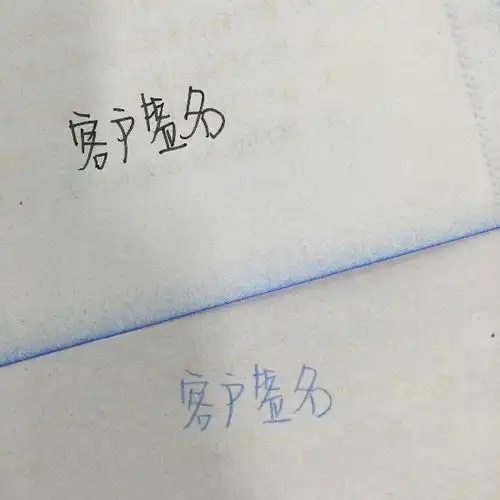 客户签名
客户签名